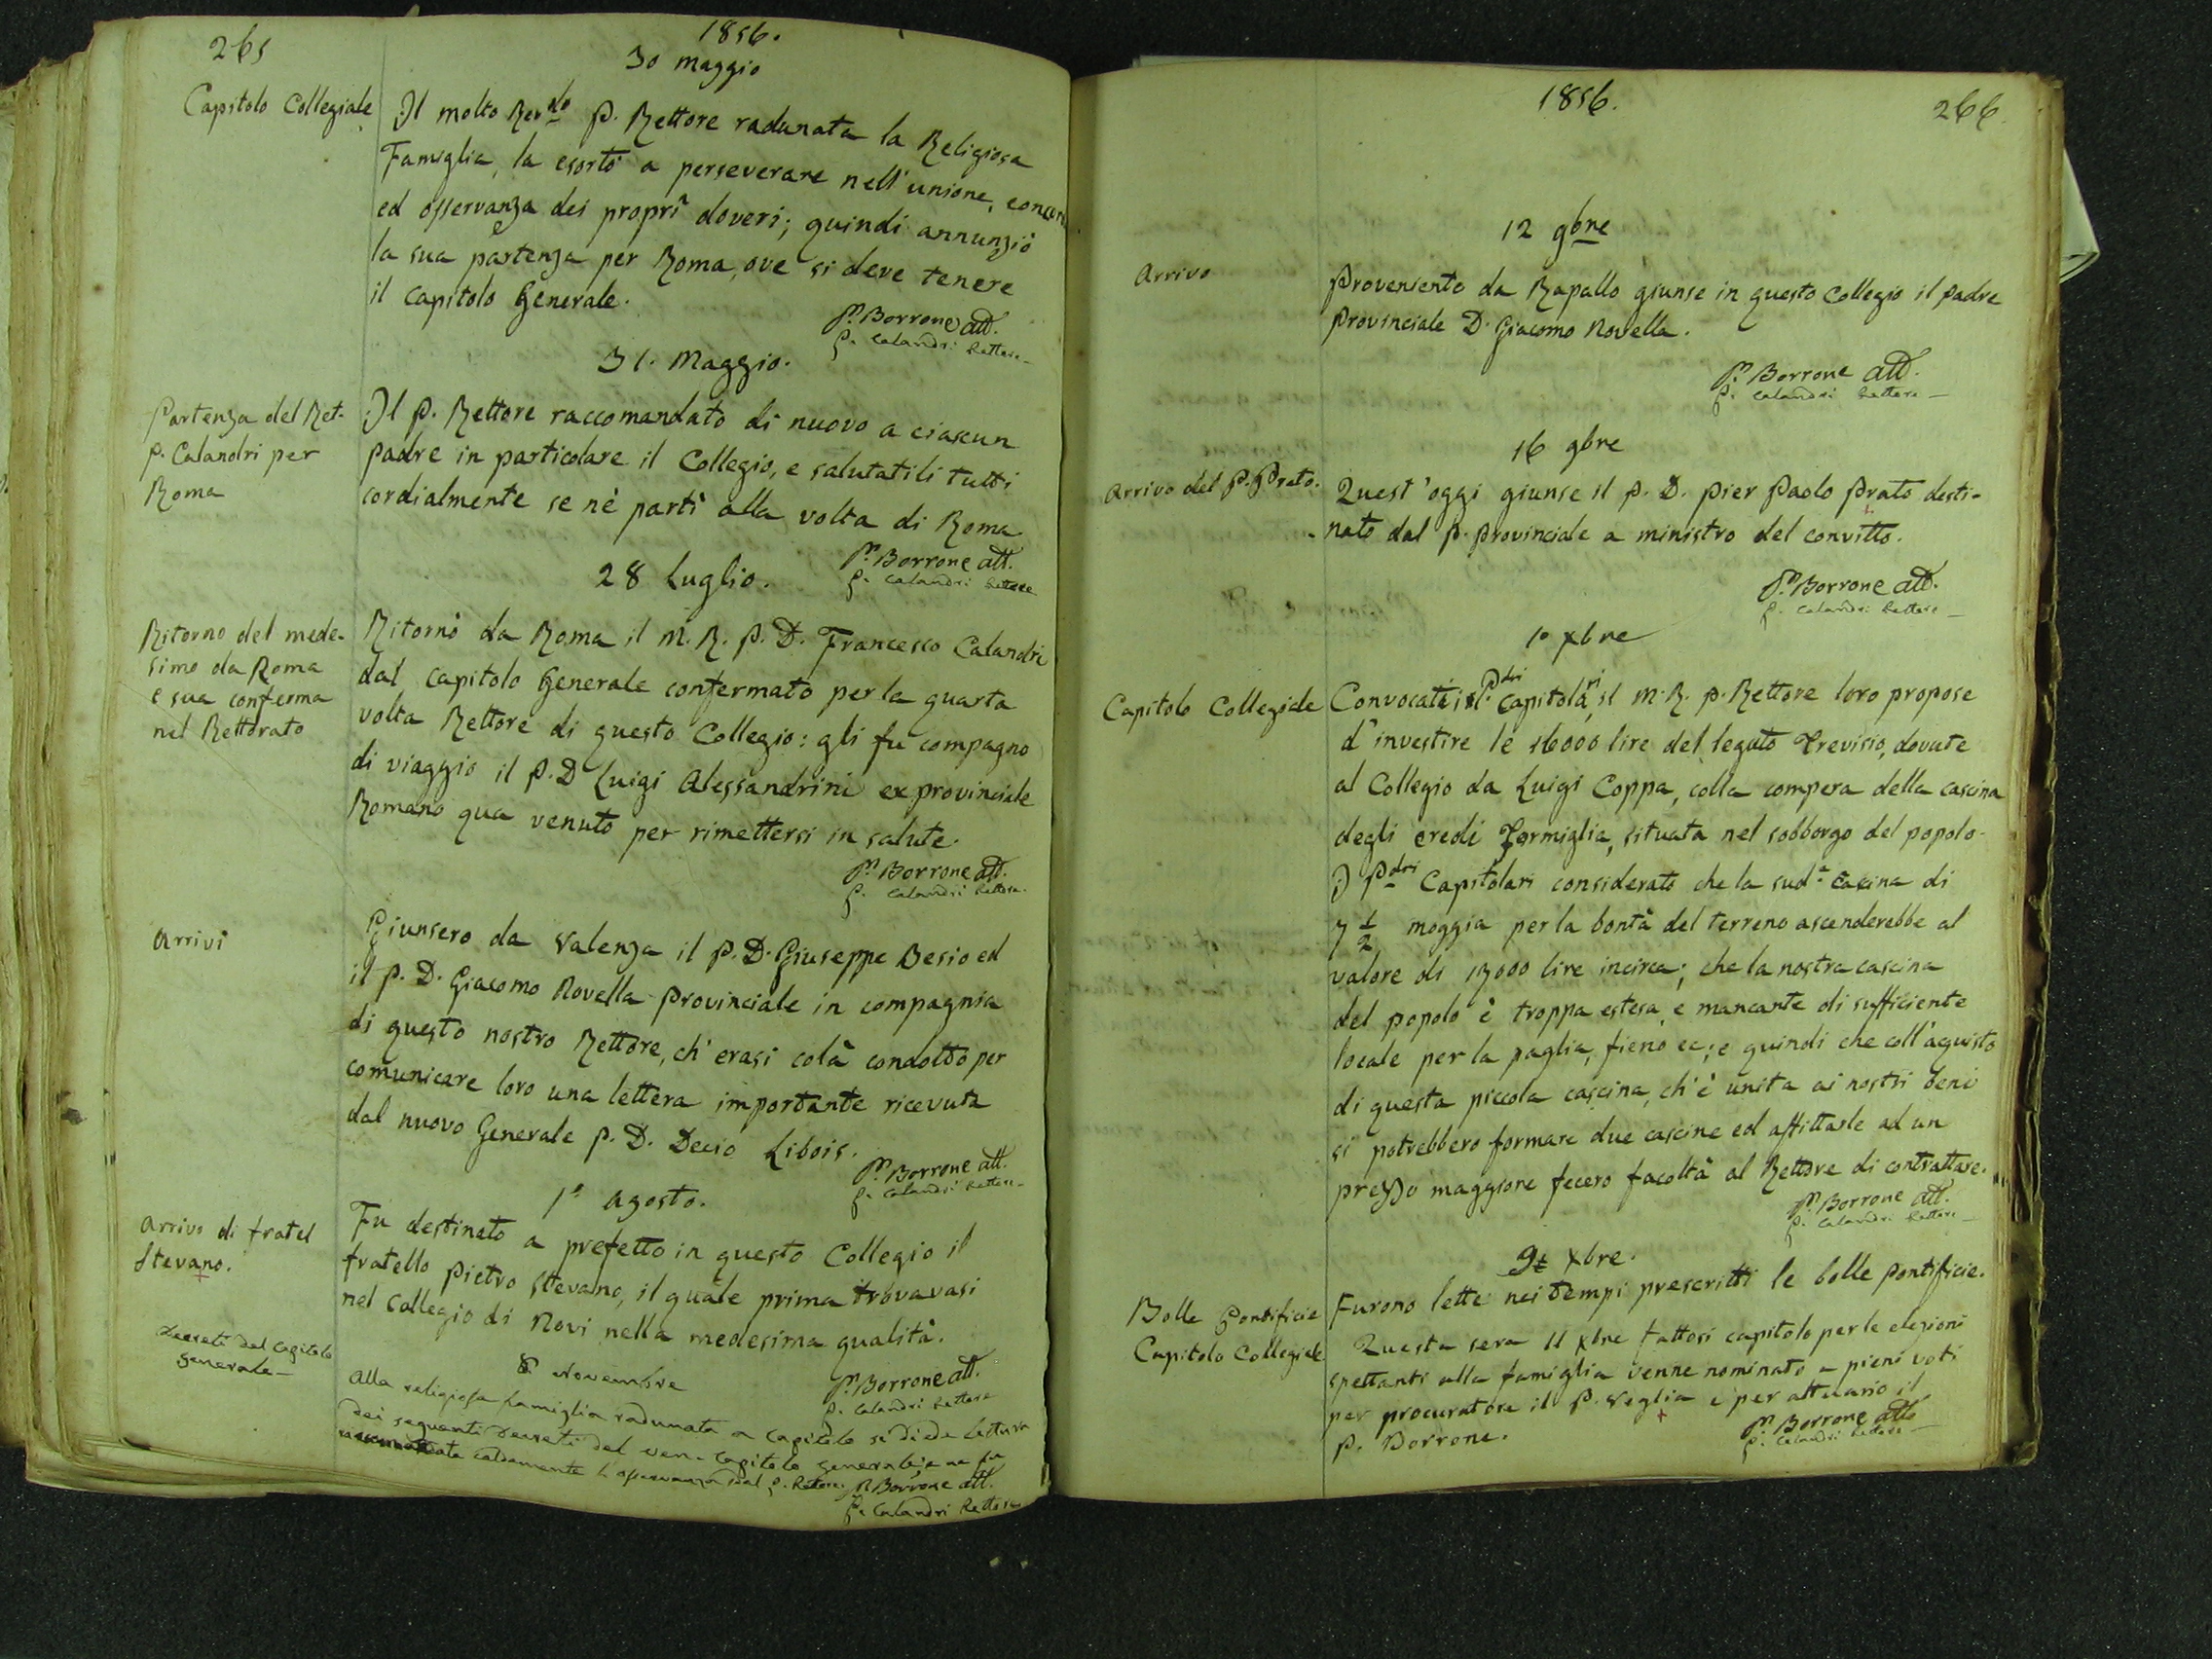 265
1856.
30 maggio
Capitolo Collegiale
Il molto Rev.do P. Rettore radunata la Religiosa
Famiglia, la esortò a perseverare nell'unione,
ed osservanza dei proprî doveri; quindi annunziò
la sua partenza per Roma, ove si deve tenere
il Capitolo Generale.
P. Borrone att.
P. Calandri Rettore
31. Maggio.
Partenza del Ret.
P. Calandri per
Roma
Il P. Rettore raccomandato di nuovo a ciascun
padre in particolare il Collegio, e salutatili tutti
cordialmente se nè partì alla volta di Roma
P. Borrone att.
P. Calandri Rettore
28 Luglio.
Ritorno del mede-
simo da Roma
e sua conferma
nel Rettorato
Ritornò da Roma il M. R. P. D. Francesco Calandri
dal capitolo Generale confermato per la quarta
volta Rettore di questo Collegio: gli fu compagno
di viaggio il P. D. Luigi Alessandrini ex provinciale
Romano qua venuto per rimettersi in salute.
P. Borrone att.
P. Calandri Rettore
Arrivi
Giunsero da Valenza il P. D. Giuseppe Besio ed
il P. D. Giacomo Novella Provinciale in compagnia
di questo nostro Rettore, ch'erasi colà condotto per
comunicare loro una lettera importante ricevuta
dal nuovo Generale P. D. Decio Libois.
P. Borrone att.
P. Calandri Rettore
1° Agosto.
Arrivo di fratel
Stevano.
Fu destinato a prefetto in questo Collegio il
fratello Pietro Stevano, il quale prima trovavasi
nel Collegio di Novi nella medesima qualità.
P. Borrone att.
P. Calandri Rettore
8 Novembre
Decreti del Capitolo
Generale
Alla religiosa famiglia radunata a Capitolo si diede lettura
dei seguenti Decreti del ven. Capitolo Generale, e ne fu
raccomandata caldamente l'osservanza dal P. Rettore. P. Borrone att.
P. Calandri Rettore
1856.
266.
12 9bre
Arrivo
Proveniente da Rapallo giunse in questo Collegio il Padre
Provinciale D. Giacomo Novella.
P. Borrone att.
P. Calandri Rettore
16 9bre
Arrivo del P. Prato.
Quest'oggi giunse il P. D. Pier Paolo Prato desti-
nato dal P. Provinciale a ministro del convitto.
P. Borrone att.
P. Calandri Rettore
1° Xbre
Capitolo Collegiale
Convocati i P.dri Capitolari, il M. R. P. Rettore loro propose
d'investire le 16000 lire del legato Trevisio, dovute
al Collegio da Luigi Coppa, colla compera della cascina
degli eredi Formiglia, situata nel sobborgo del popolo.
I P.dri Capitolari considerato che la sud.a cascina di
7 1/2 moggia per la bontà del terreno ascenderebbe al
valore di 13000 lire incirca; che la nostra cascina
del popolo è troppa estesa, e mancante di sufficiente
locale per la paglia, fieno ec; e quindi che coll'acquisto
di questa piccola cascina, ch'è unita ai nostri beni
si potrebbero formare due cascine ed affittarle ad un
prezzo maggiore fecero facoltà al Rettore di contrattare.
P. Borrone att.
P. Calandri Rettore
Xbre.
Bolle Pontificie
Furono lette nei tempi prescritti le bolle pontificie.
Capitolo Collegiale
Questa sera 11 Xbre fattosi capitolo per le elezioni
spettanti alla famiglia venne nominato a pieni voti
per procuratore il P. Veglia e per attuario il
P. Borrone.
P. Borrone att.
P. Calandri Rettore